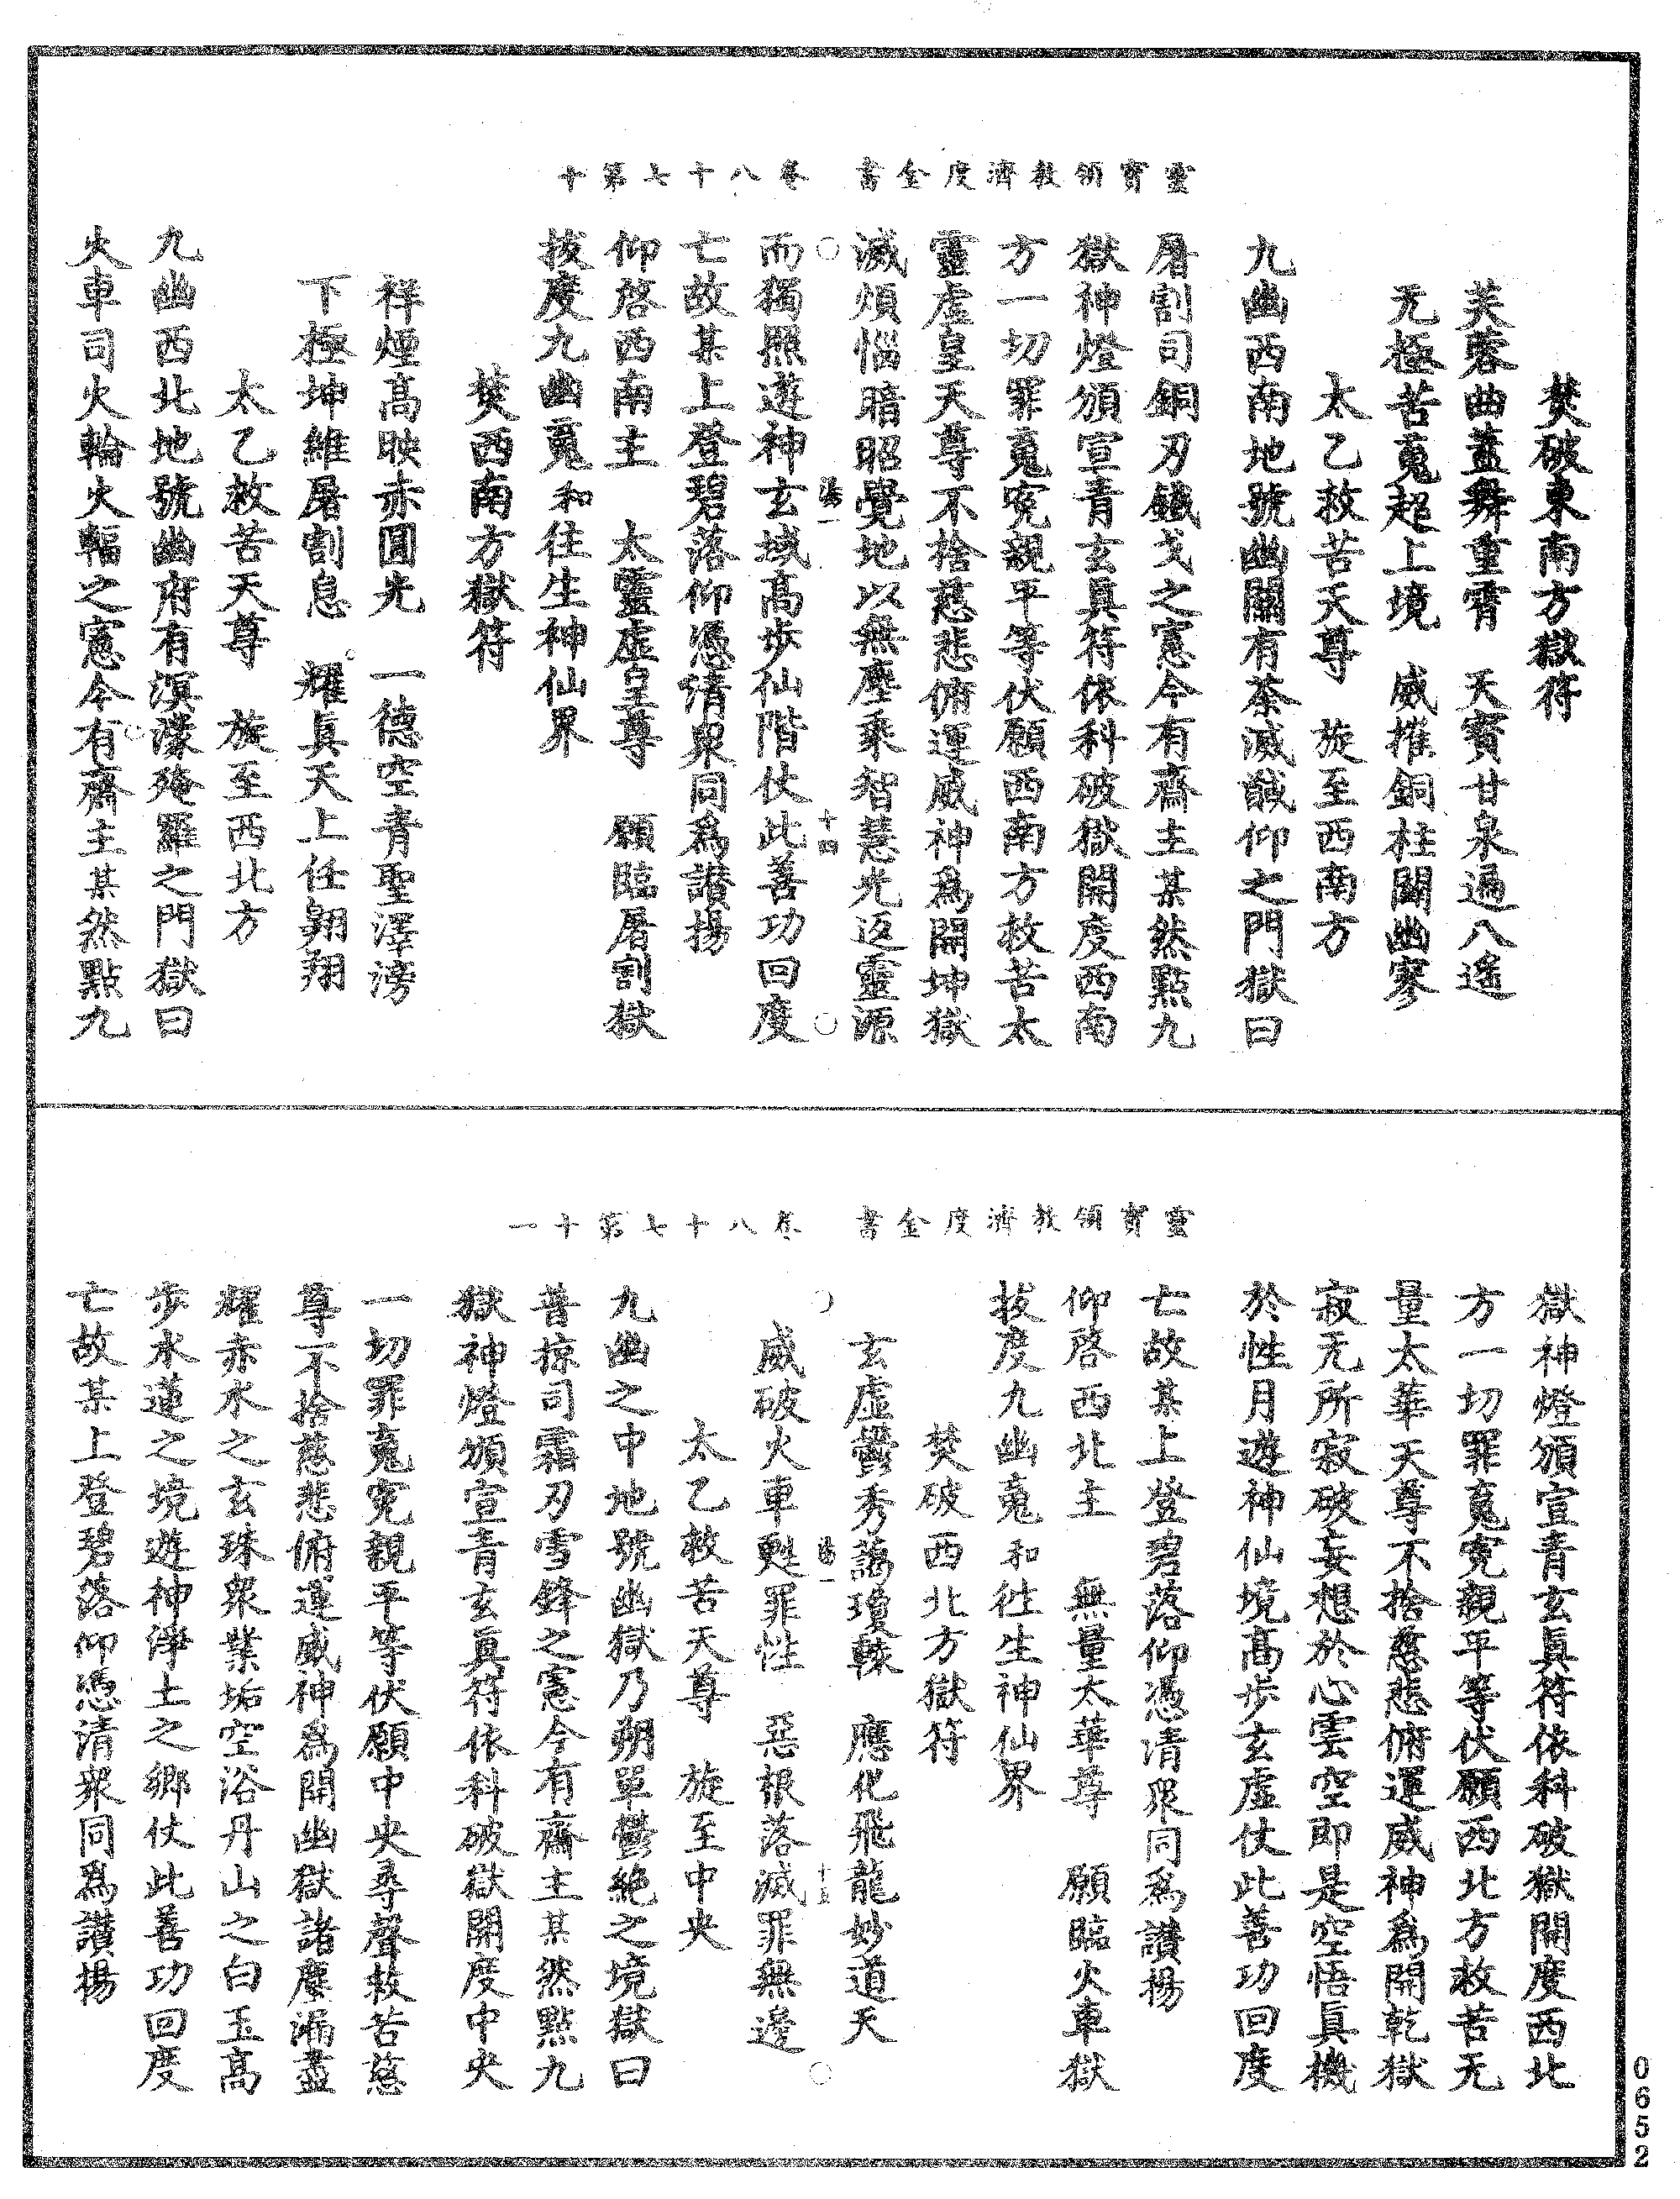 靈寶領教濟度金書　卷八十七第十
焚破東南方獄符
芙蓉曲蓋舞重霄　天賓甘泉遍八遙
无極苦䰟超上境　威摧銅柱闢幽寥
太乙救苦天尊　旋至西南方
九幽西南地號幽關有荼滅馘仰之門獄曰
屠割司銅刀鐵戈之憲今有齋主某然點九
獄神燈頒宣青玄眞符依科破獄開度西南
方一切罪䰟寃親平等伏願西南方救苦太
靈虛皇天尊不捨慈悲俯運威神爲開坤獄
滅煩惱暗昭覺地以無塵乘智慧光返靈源
十四
而獨照遊神玄域高步仙階仗此善功回度
亡故某上登碧落仰憑清衆同爲讃揚
仰啓西南主　太靈虛皇尊　願臨屠割獄
拔度九幽䰟和往生神仙界
焚西南方獄符
祥煙高映赤圓光　一德空青聖澤滂
下極坤維屠割息　耀眞天上任翺翔
太乙救苦天尊　旋至西北方
九幽西北地號幽府有溟濛殗羅之門獄曰
火車司火輪火輻之憲今有齋主某然點九
靈寶領教濟度金書　卷八十七第十一
獄神燈頒宣青玄眞符依科破獄開度西北
方一切罪䰟寃親平等伏願西北方救苦无
量太華天尊不捨慈悲俯運威神爲開乾獄
寂无所寂破妄想於心雲空即是空悟眞機
於性月遊神仙境高步玄虛仗此善功回度
亡故某上登碧落仰憑清衆同爲讃揚
仰啓西北主　無量太華尊　願臨火車獄
拔度九幽䰟和徃生神仙界
焚破西北方獄符
玄虛鬱秀藹瓊輳　應化飛龍妙道天
十五
威破火車甦罪性　惡根落滅罪無邊
太乙救苦天尊　旋至中央
九幽之中地號幽獄乃朔單鬱絶之境獄曰
普掠司霜刃雪鋒之憲今有齋主某然點九
獄神燈頒宣青玄眞符依科破獄開度中央
一切罪䰟寃親平等伏願中央尋聲救苦慈
尊不捨慈悲俯運威神爲開幽獄諸塵漏盡
耀赤水之玄珠衆業垢空浴丹山之白玉高
步水蓮之境遊神淨土之鄉仗此善功回度
亡故某上登碧落仰憑清衆同爲讃揚
0652